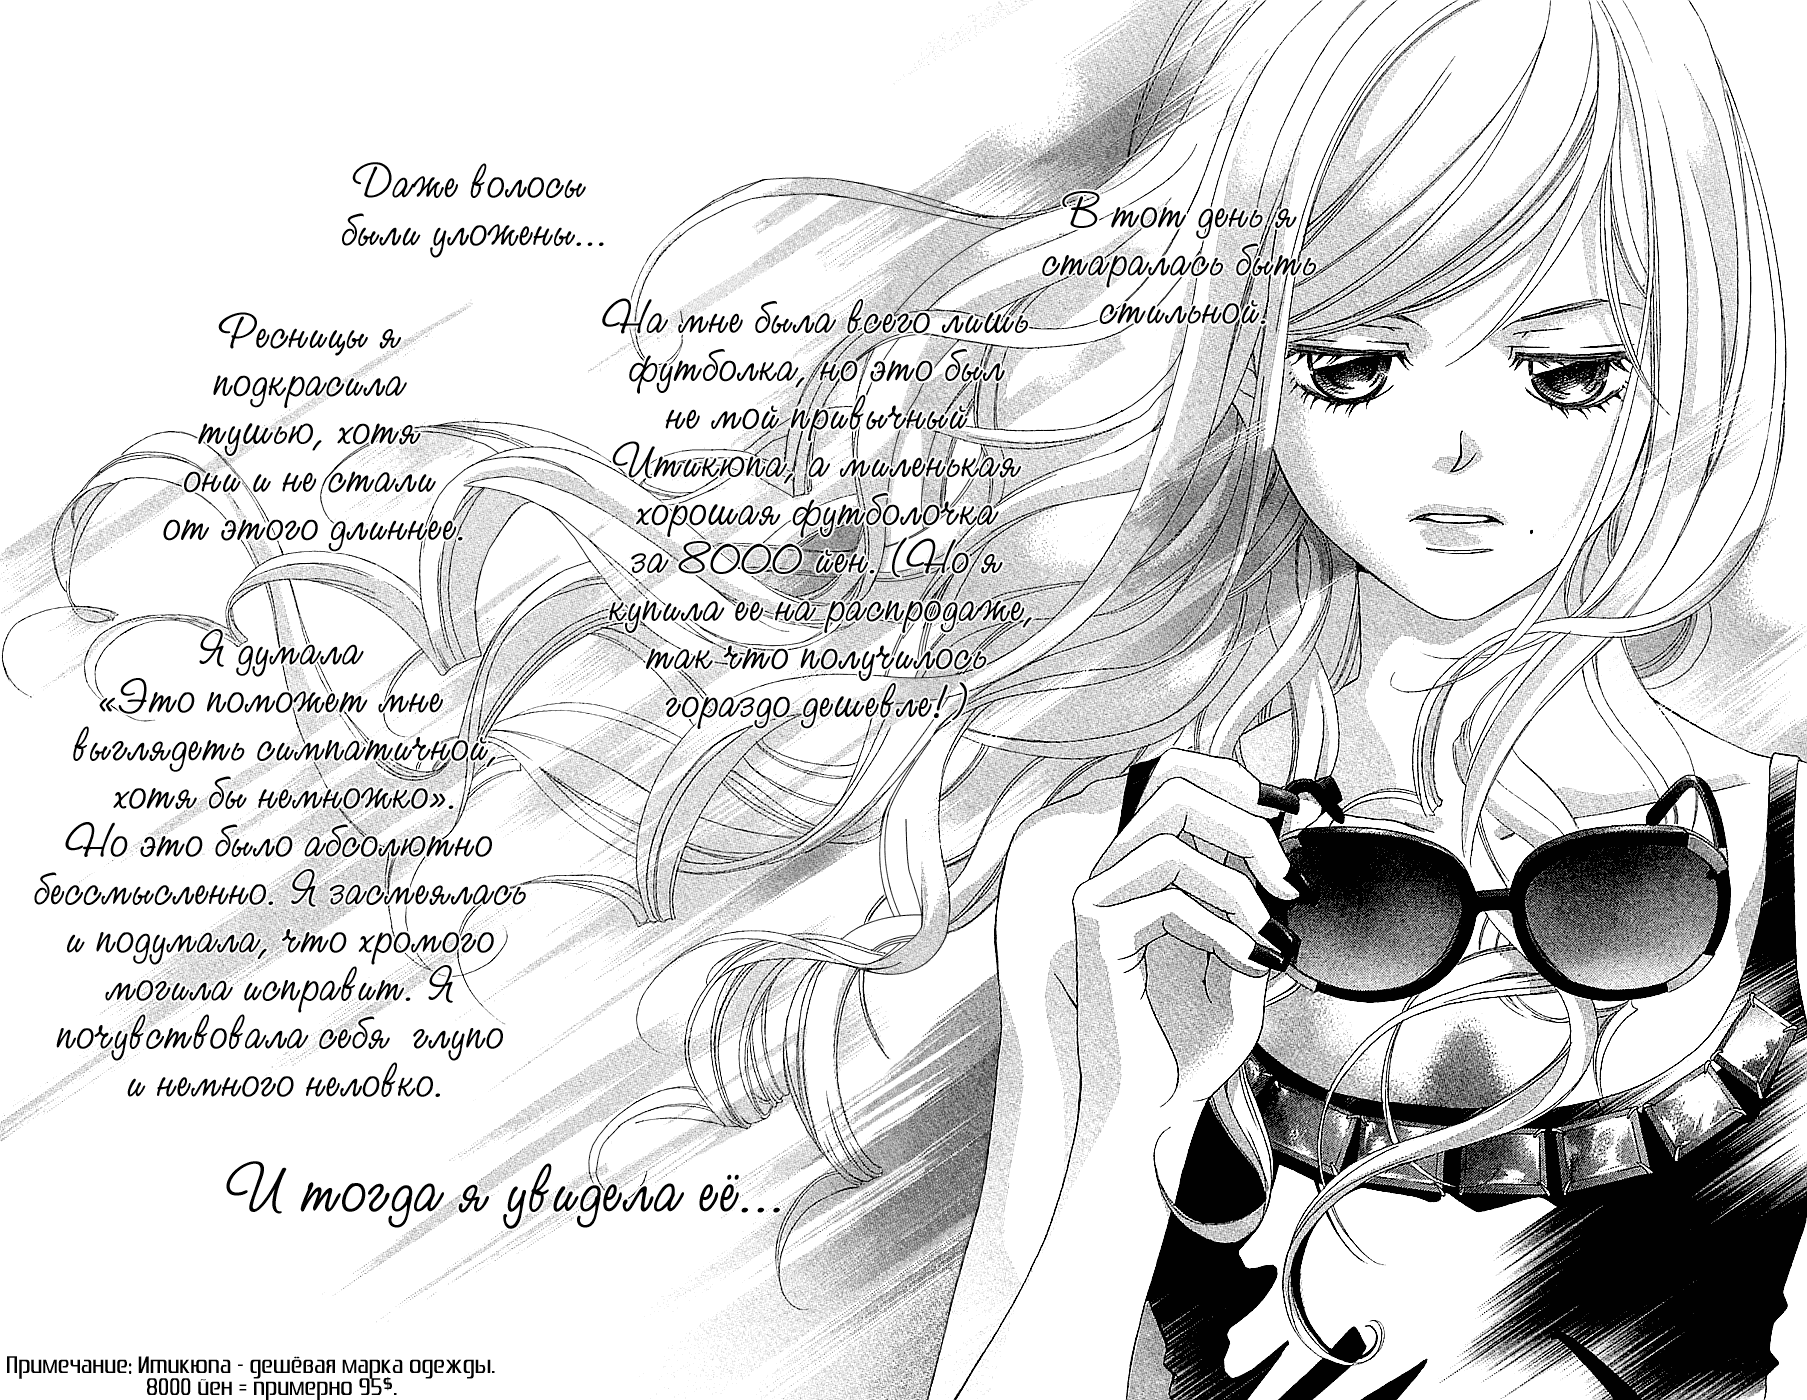 В тот день я
старалась быть
стильной.
На мне была всего лишь
футболка, но это был
не мой привычный
Итикюпа, а миленькая
хорошая футболочка
за 8000 йен. (Но я
купила ее на распродаже,
так что получилось
гораздо дешевле!)
Даже волосы
были уложены...
Ресницы я
подкрасила
тушью, хотя
они и не стали
от этого длиннее.
Я думала
«Это поможет мне
выглядеть симпатичной,
хотя бы немножко».
Но это было абсолютно
бессмысленно. Я засмеялась
и подумала, что хромого
могила исправит. Я
почувствовала себя глупо
и немного неловко.
И тогда я увидела её...
Примечание: Итикюпа - дешёвая марка одежды.
8000 йен = примерно 95$.